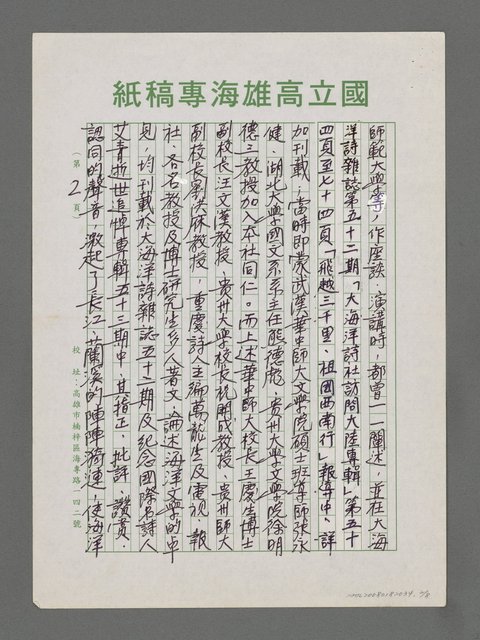 國立高雄海專稿紙
師範大學等，作座談、演講時，都曾一一闡述，並在大海
洋詩雜誌第五十二期「大海洋詩社訪問大陸專輯」第五十
四頁至七十四頁「飛越三千里、祖國西南行」報導中，詳
加刊載，當時即蒙武漢華中師大文學院碩士班導師張永
健、湖北大學國文系系主任熊德彪、貴州大學文學院徐明
德三教授加入本社同仁。而上述華中師大校長王慶生博士
副校長汪文漢教授、貴州大學校長祝開成教授、貴州師大
副校長教授，重慶詩人主編萬龍生及電視、報
社、各名教授及博士研究生多人著文，論述海洋文學的卓
見，均刊載於大海洋詩雜誌五十二期及紀念國際名詩人
艾青逝世追悼專輯五十三期中，其指正、批評、讚賞、
認同的聲音，激起了長江、蘭溪的陣陣漪漣，使海洋
（第 2 頁）
校址：高雄市楠梓區海專路一四二號